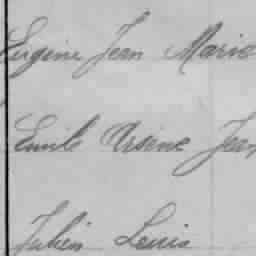 Eugène Jean Marie
Emile Arsène Jean
Julien Louis